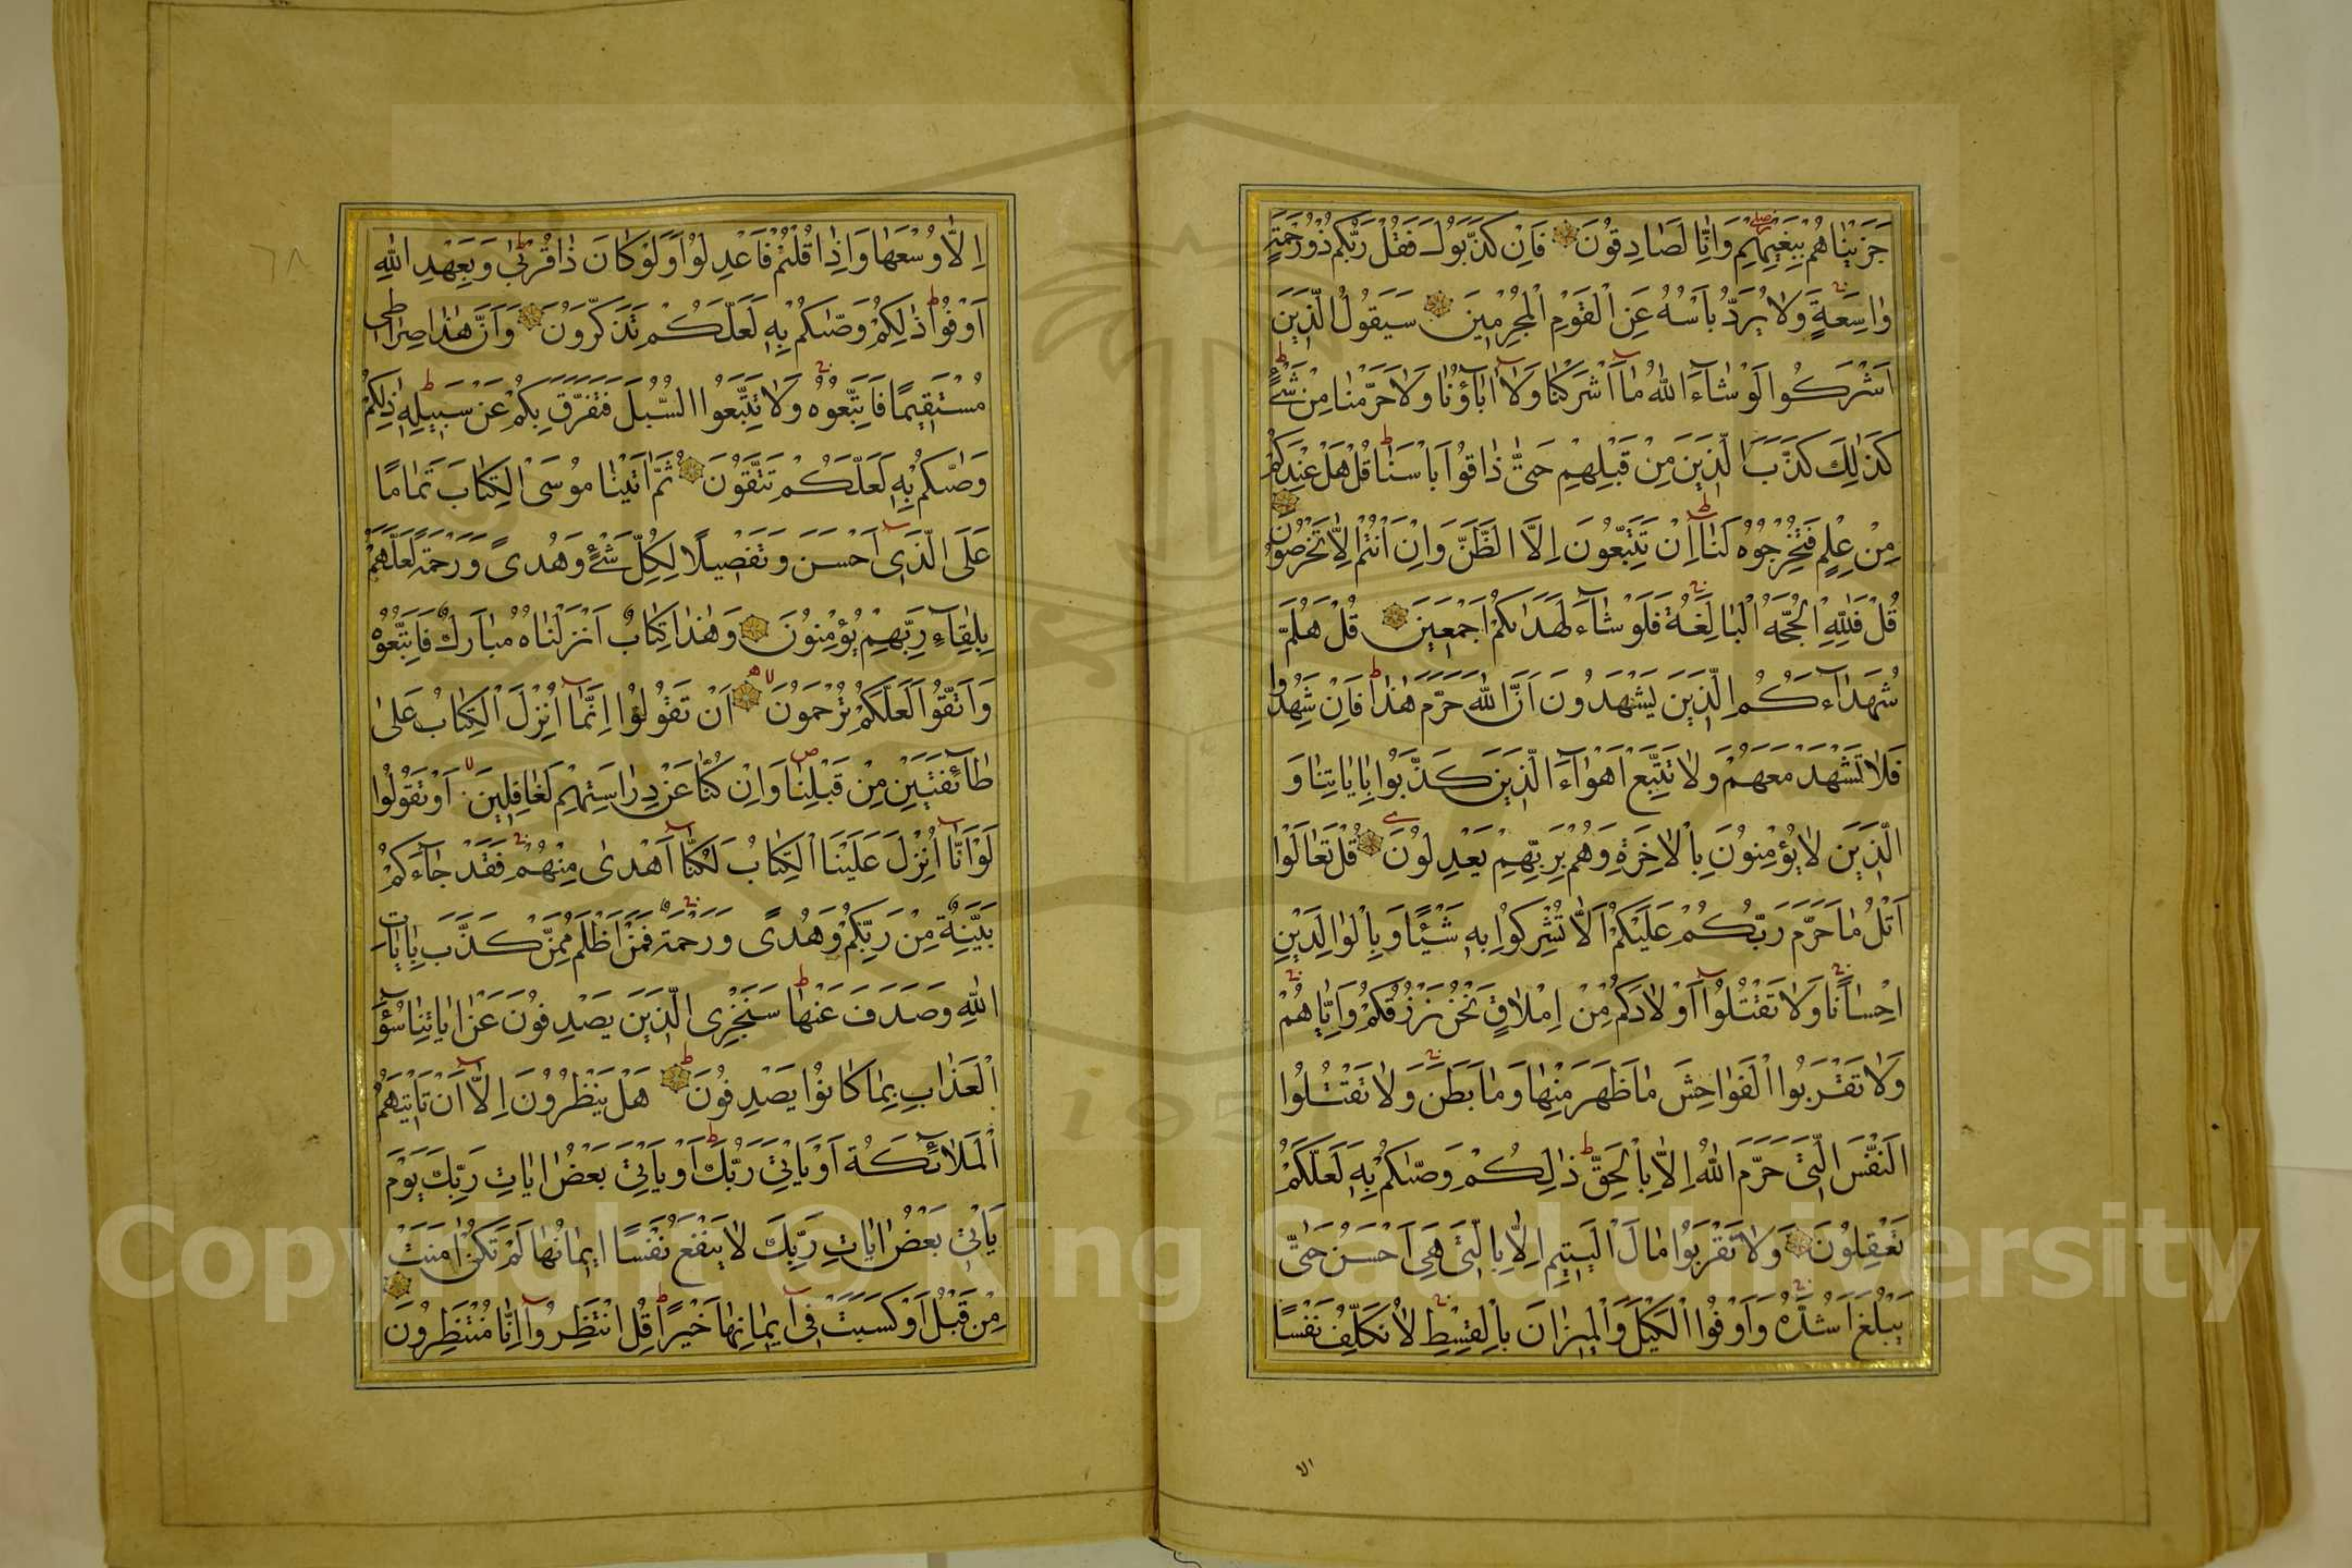 جَزَيْنَاهُمْ بِبَغْيِهِمْ وَاِنَّا لَصَادِقُونَ فَاِنْ كَذَّبُوكَ فَقُلْ رَبُّكُمْ ذُورَحْمَةٍ
وَاسِعَةٍ وَلَا يُرَدُّ بَاْسُهُ عَنِ الْقَوْمِ الْمُجْرِمِينَ سَيَقُولُ الَّذِينَ
اَشْرَكُوا لَوْ شَآءَ اللّٰهُ مَآ اَشْرَكْنَا وَلَآ اٰبَآؤُنَا وَلَا حَرَّمْنَا مِنْ شَىْءٍ
كَذٰلِكَ كَذَّبَ الَّذِينَ مِنْ قَبْلِهِمْ حَتّٰى ذَاقُوا بَاْسَنَا قُلْ هَلْ عِنْدَكُمْ
مِنْ عِلْمٍ فَتُخْرِجُوهُ لَنَا اِنْ تَتَّبِعُونَ اِلَّا الظَّنَّ وَاِنْ اَنْتُمْ اِلَّا تَخْرُصُونَ
قُلْ فَلِلّٰهِ الْحُجَّةُ الْبَالِغَةُ فَلَوْ شَآءَ لَهَدٰىكُمْ اَجْمَعِينَ قُلْ هَلُمَّ
شُهَدَآءَكُمُ الَّذِينَ يَشْهَدُونَ اَنَّ اللّٰهَ حَرَّمَ هٰذَا فَاِنْ شَهِدُوا
فَلَا تَشْهَدْ مَعَهُمْ وَلَا تَتَّبِعْ اَهْوَآءَ الَّذِينَ كَذَّبُوا بِاٰيَاتِنَا وَ
الَّذِينَ لَا يُؤْمِنُونَ بِالْاٰخِرَةِ وَهُمْ بِرَبِّهِمْ يَعْدِلُونَ قُلْ تَعَالَوْا
اَتْلُ مَا حَرَّمَ رَبُّكُمْ عَلَيْكُمْ اَلَّا تُشْرِكُوا بِهِ شَيْئًا وَبِالْوَالِدَيْنِ
اِحْسَانًا وَلَا تَقْتُلُوآ اَوْلَادَكُمْ مِنْ اِمْلَاقٍ نَحْنُ نَرْزُقُكُمْ وَاِيَّاهُمْ
وَلَا تَقْرَبُوا الْفَوَاحِشَ مَا ظَهَرَ مِنْهَا وَمَا بَطَنَ وَلَا تَقْتُلُوا
النَّفْسَ الَّتِى حَرَّمَ اللّٰهُ اِلَّا بِالْحَقِّ ذٰلِكُمْ وَصّٰىكُمْ بِهِ لَعَلَّكُمْ
تَعْقِلُونَ وَلَا تَقْرَبُوا مَالَ الْيَتِيمِ اِلَّا بِالَّتِى هِىَ اَحْسَنُ حَتّٰى
يَبْلُغَ اَشُدَّهُ وَاَوْفُوا الْكَيْلَ وَالْمِيزَانَ بِالْقِسْطِ لَا نُكَلِّفُ نَفْسًا
الا
٦٨
اِلَّا وُسْعَهَا وَاِذَا قُلْتُمْ فَاعْدِلُوا وَلَوْ كَانَ ذَا قُرْبٰى وَبِعَهْدِ اللّٰهِ
اَوْفُوا ذٰلِكُمْ وَصّٰىكُمْ بِهِ لَعَلَّكُمْ تَذَكَّرُونَ وَاَنَّ هٰذَا صِرَاطِى
مُسْتَقِيمًا فَاتَّبِعُوهُ وَلَا تَتَّبِعُوا السُّبُلَ فَتَفَرَّقَ بِكُمْ عَنْ سَبِيلِهِ ذٰلِكُمْ
وَصّٰىكُمْ بِهِ لَعَلَّكُمْ تَتَّقُونَ ثُمَّ اٰتَيْنَا مُوسَى الْكِتَابَ تَمَامًا
عَلَى الَّذِى اَحْسَنَ وَتَفْصِيلًا لِكُلِّ شَىْءٍ وَهُدًى وَرَحْمَةً لَعَلَّهُمْ
بِلِقَآءِ رَبِّهِمْ يُؤْمِنُونَ وَهٰذَا كِتَابٌ اَنْزَلْنَاهُ مُبَارَكٌ فَاتَّبِعُوهُ
وَاتَّقُوا لَعَلَّكُمْ تُرْحَمُونَ اَنْ تَقُولُوا اِنَّمَآ اُنْزِلَ الْكِتَابُ عَلٰى
طَآئِفَتَيْنِ مِنْ قَبْلِنَا وَاِنْ كُنَّا عَنْ دِرَاسَتِهِمْ لَغَافِلِينَ اَوْ تَقُولُوا
لَوْ اَنَّآ اُنْزِلَ عَلَيْنَا الْكِتَابُ لَكُنَّآ اَهْدٰى مِنْهُمْ فَقَدْ جَآءَكُمْ
بَيِّنَةٌ مِنْ رَبِّكُمْ وَهُدًى وَرَحْمَةٌ فَمَنْ اَظْلَمُ مِمَّنْ كَذَّبَ بِاٰيَاتِ
اللّٰهِ وَصَدَفَ عَنْهَا سَنَجْزِى الَّذِينَ يَصْدِفُونَ عَنْ اٰيَاتِنَا سُوٓءَ
الْعَذَابِ بِمَا كَانُوا يَصْدِفُونَ هَلْ يَنْظُرُونَ اِلَّآ اَنْ تَاْتِيَهُمُ
الْمَلَآئِكَةُ اَوْ يَاْتِىَ رَبُّكَ اَوْ يَاْتِىَ بَعْضُ اٰيَاتِ رَبِّكَ يَوْمَ
يَاْتِى بَعْضُ اٰيَاتِ رَبِّكَ لَا يَنْفَعُ نَفْسًا اِيمَانُهَا لَمْ تَكُنْ اٰمَنَتْ
مِنْ قَبْلُ اَوْ كَسَبَتْ فِىٓ اِيمَانِهَا خَيْرًا قُلِ انْتَظِرُوآ اِنَّا مُنْتَظِرُونَ
Copyright © King Saud University
1957